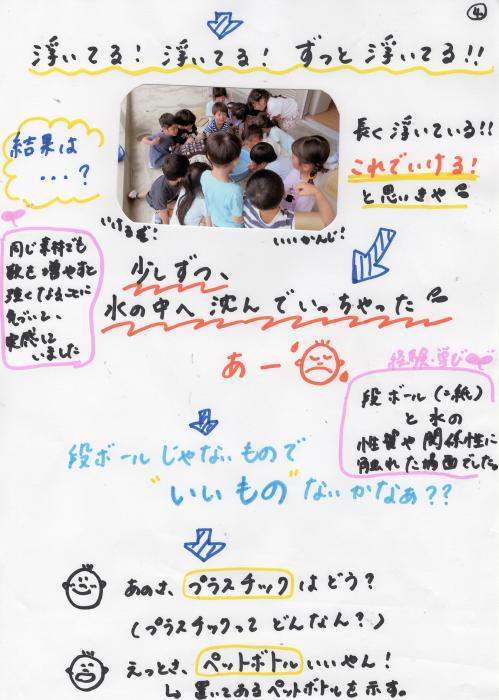 ④
浮いてる! 浮いてる! ずっと 浮いてる!!
結果は
...?
長く 浮いている!!
これでいける!
と思いきや
いけるぞ!
いいかんじ!
同じ素材でも
数を増やすと
強くなることに
気づいて、
実感して
いました
少しずつ、
水の中へ 沈んでいっちゃった
あー
経験・学び
段ボール(=紙)
と 水の
性質や関係性に
触れた場面でした。
段ボールじゃないもので
"いいもの" ないかなぁ??
あのさ、プラスチック はどう?
(プラスチックって どんなん?)
えっとさ、ペットボトル いいやん!
↳ 置いてあるペットボトルを示す。